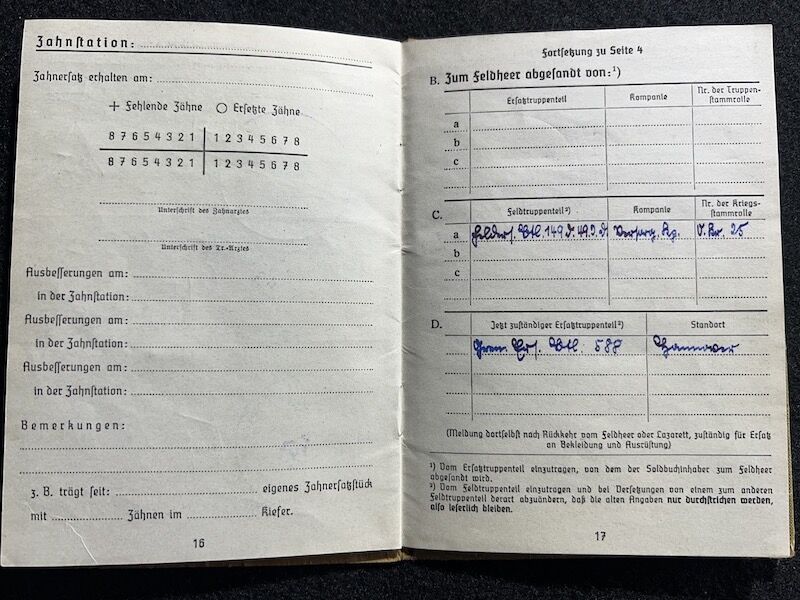 Zahnstation:
Zahnersatz erhalten am:
+ Fehlende Zähne ○ Ersetzte Zähne
8 7 6 5 4 3 2 1 | 1 2 3 4 5 6 7 8
8 7 6 5 4 3 2 1 | 1 2 3 4 5 6 7 8
Unterschrift des Zahnarztes
Unterschrift des Tr.-Arztes
Ausbesserungen am:
in der Zahnstation:
Ausbesserungen am:
in der Zahnstation:
Ausbesserungen am:
in der Zahnstation:
Bemerkungen:
z. B. trägt seit: eigenes Zahnersatzstück
mit Zähnen im Kiefer.
16
Fortsetzung zu Seite 4
B. Zum Feldheer abgesandt von:¹)
Ersatztruppenteil Kompanie Nr. der Truppen-
stammrolle
a
b
c
C. Feldtruppenteil²) Kompanie Nr. der Kriegs-
stammrolle
a Felders. Btl. 149 d. 49. I.D. Versorg. Kp. 25
b
c
D. Jetzt zuständiger Ersatztruppenteil²) Standort
Gren. Ers. Btl. 588 Hannover
(Meldung dortselbst nach Rückkehr vom Feldheer oder Lazarett, zuständig für Ersatz
an Bekleidung und Ausrüstung)
¹) Vom Ersatztruppenteil einzutragen, von dem der Soldbuchinhaber zum Feldheer
abgesandt wird.
²) Vom Feldtruppenteil einzutragen und bei Versetzungen von einem zum anderen
Feldtruppenteil derart abzuändern, daß die alten Angaben nur durchstrichen werden,
also leserlich bleiben.
17